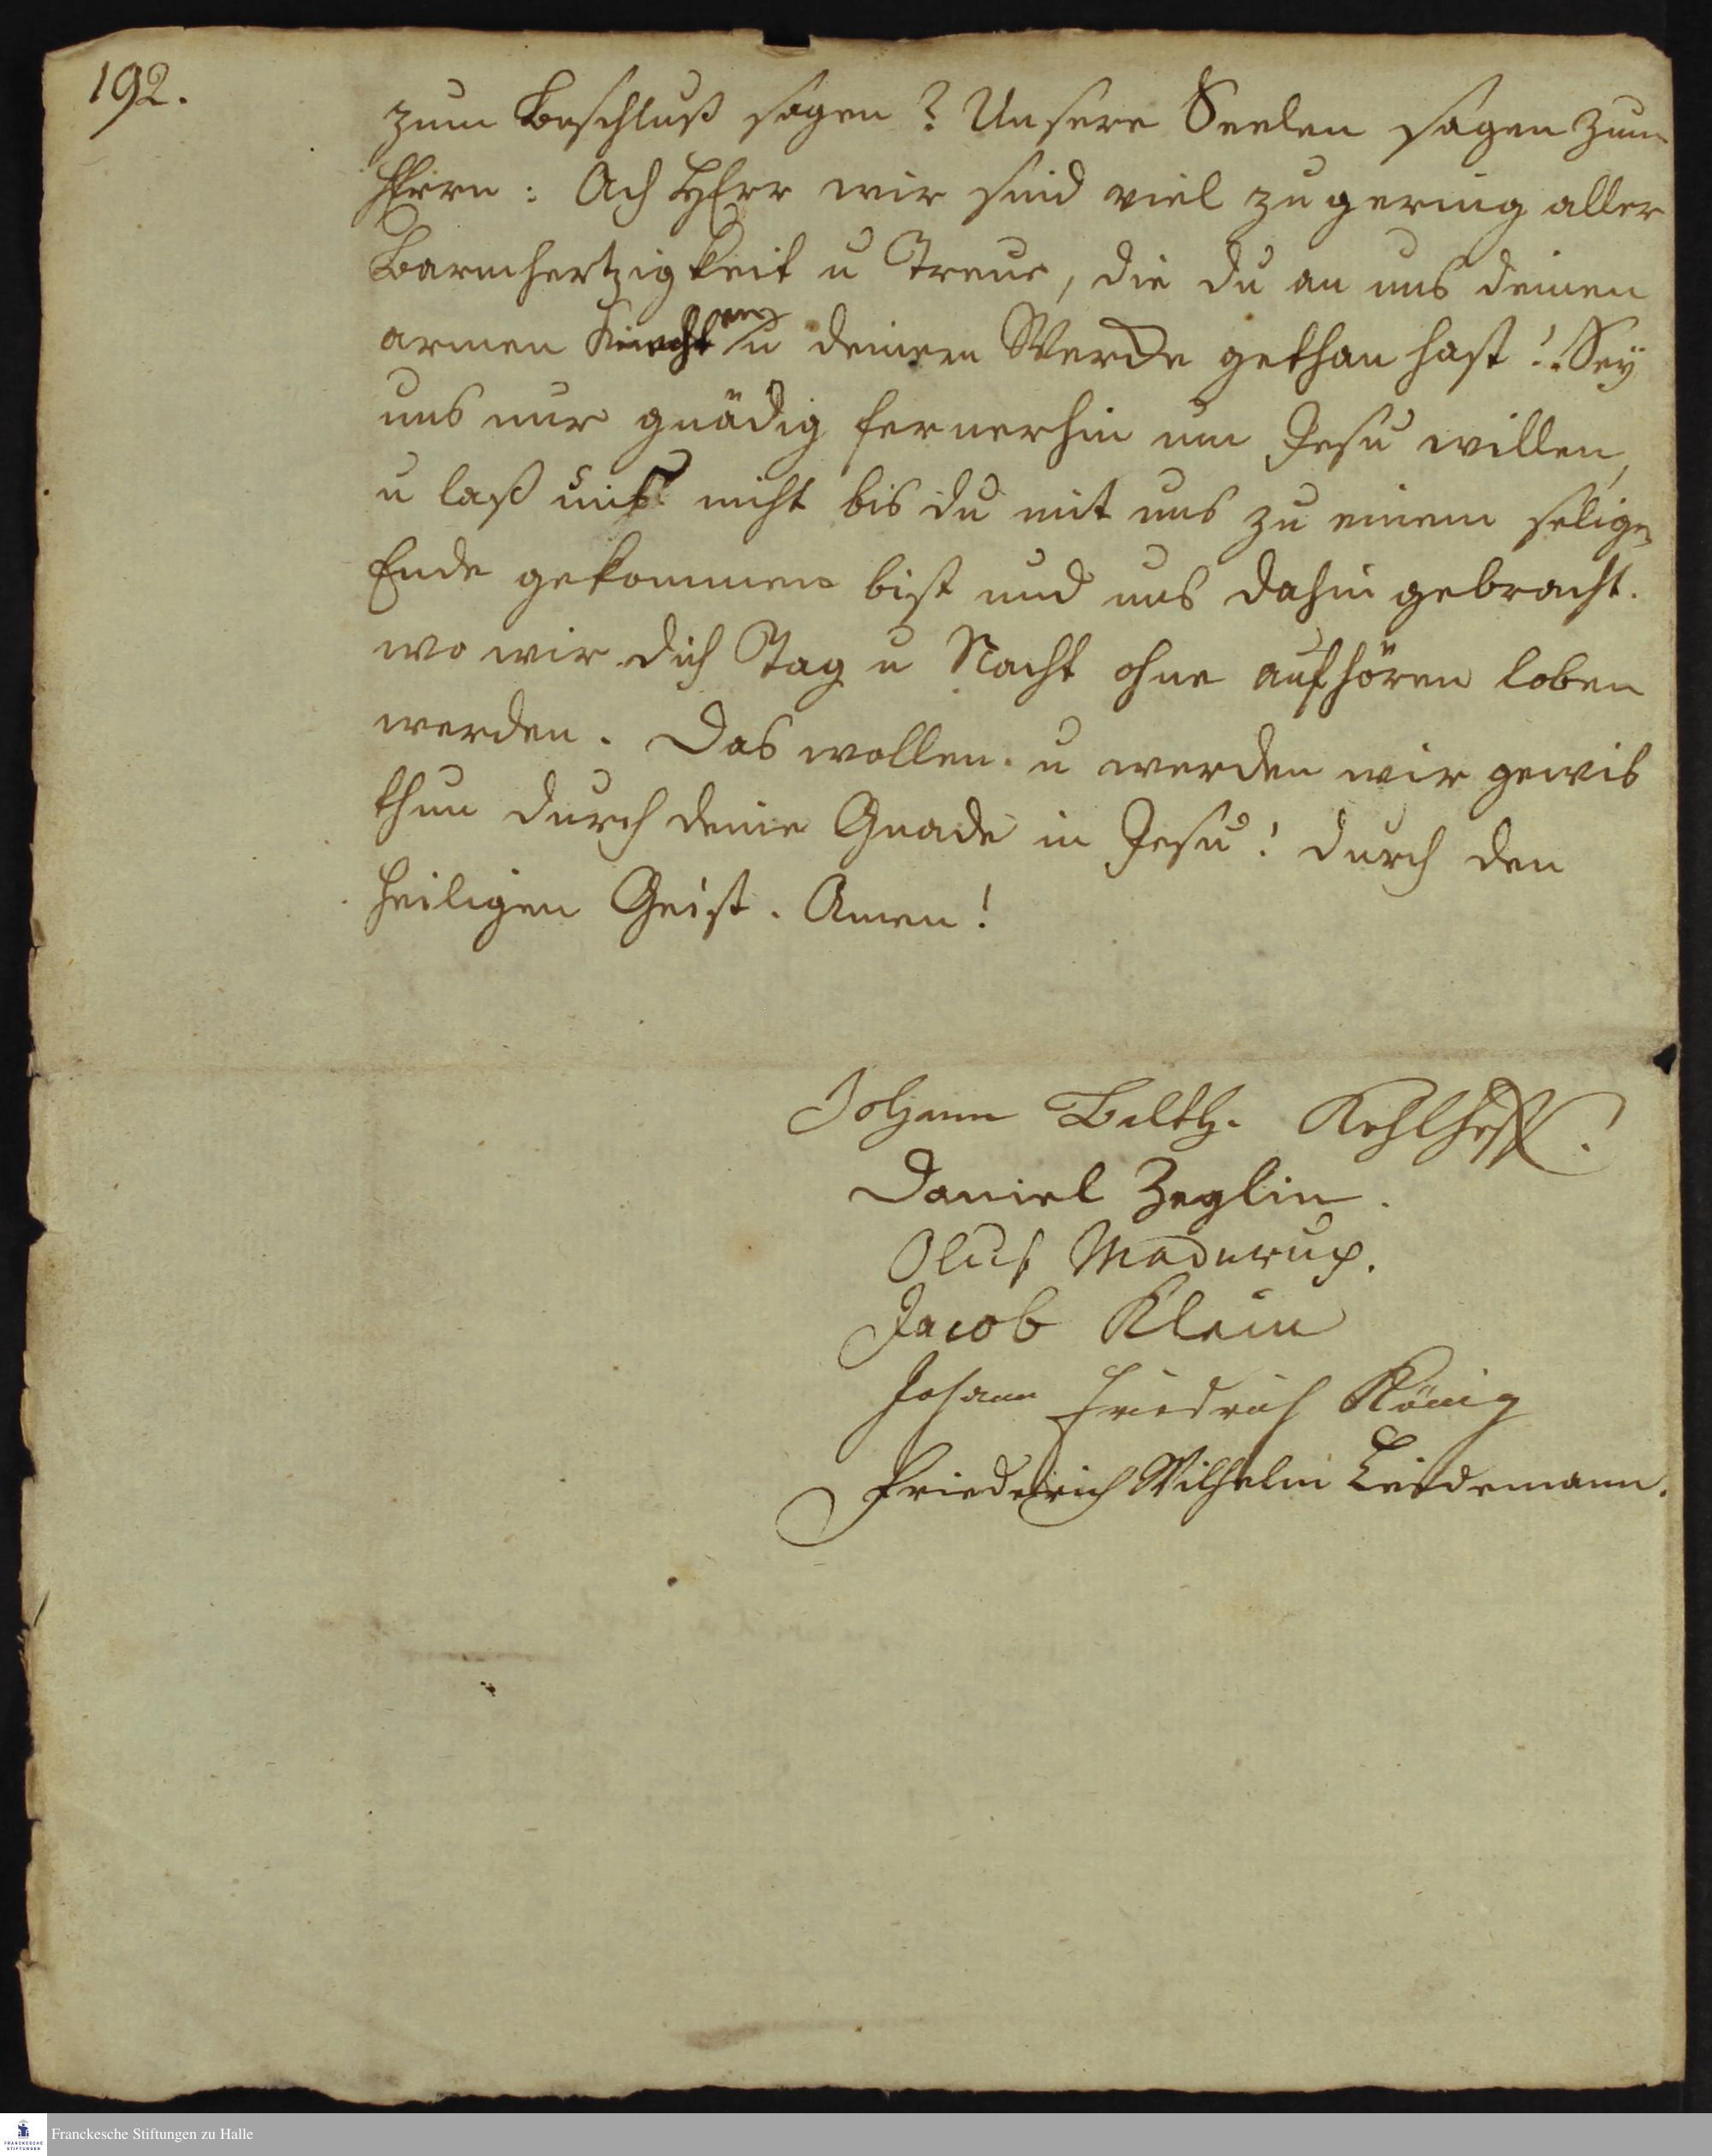 192.
zum Beschluß sagen? Unsere Seelen sagen zum
HErrn: Ach HErr wir sind viel zu gering aller
Barmhertzigkeit u Treue, die du an uns deinen
armen Knechten u deinem Wercke gethan hast! Sey
uns nur gnädig fernerhin um Jesu willen,
u laß uns nicht bis du mit uns zu einem seligen
Ende gekommen bist und uns dahin gebracht.
wo wir dich Tag u Nacht ohne aufhören loben
werden. Das wollen u werden wir gewis
thun durch deine Gnade in Jesu! durch den
heiligen Geist. Amen!
Johann Balth. Kohlhoff.
Daniel Zeglin.
Oluf Maderup.
Jacob Klein
Johann Friedrich König
Friederich Wilhelm Leidemann.
FRANCKESCHE STIFTUNGEN
Franckesche Stiftungen zu Halle